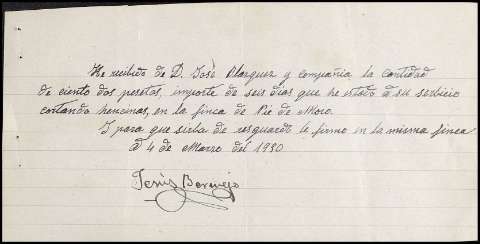 He recibido de D. José Blazquez y compañia la cantidad
de ciento dos pesetas, importe de seis dias que he estado a su serbicio
cortando hencinas, en la finca de Pie de Moro.
I para que sirba de resguardo le firmo en la misma finca
a 4 de Marzo del 1930
Bermejo